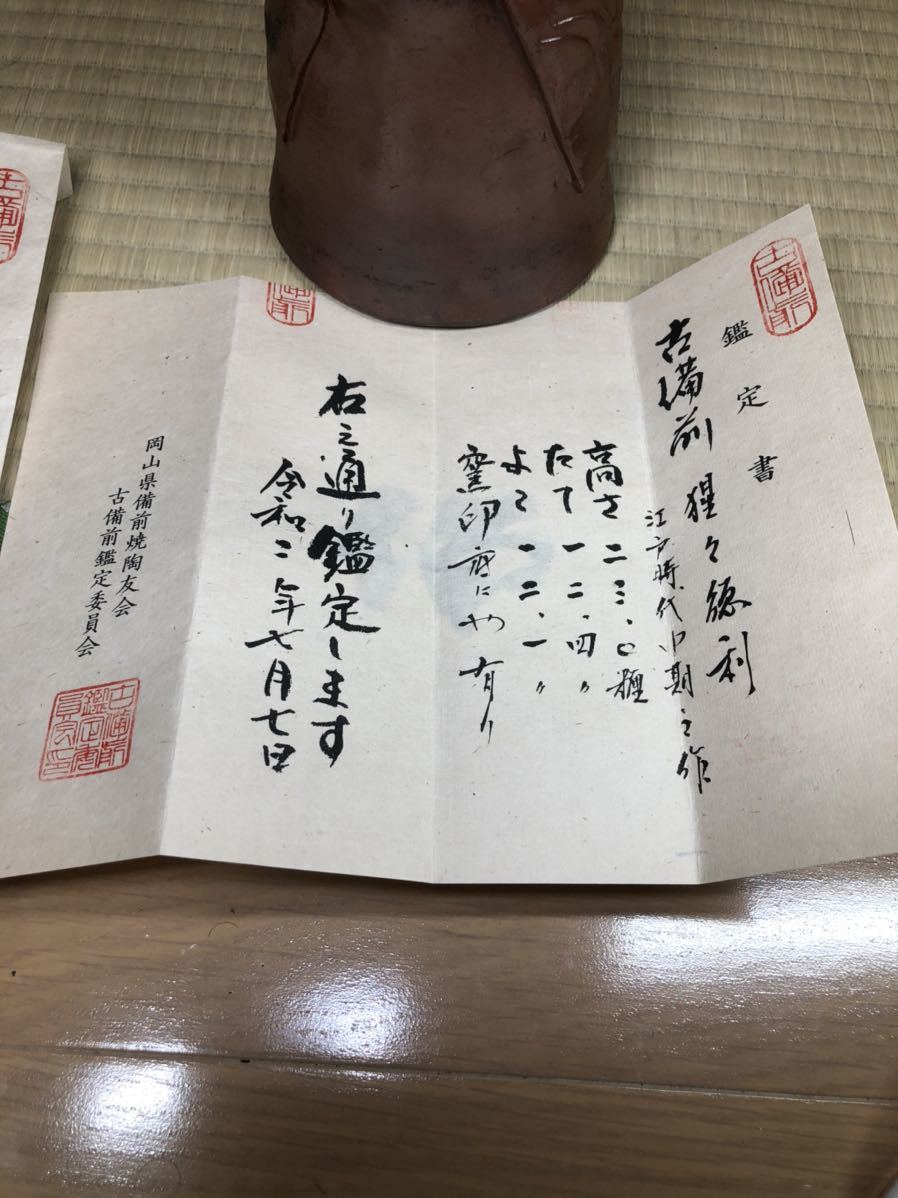 鑑定書
古備前 猩々徳利
江戸時代中期之作
高さ 二三.〇糎
たて 一二.四〃
よこ 一二.一〃
窯印 底に 有り
右之通り鑑定します
令和二年七月七日
岡山県備前焼陶友会
古備前鑑定委員会
古備前
古備前